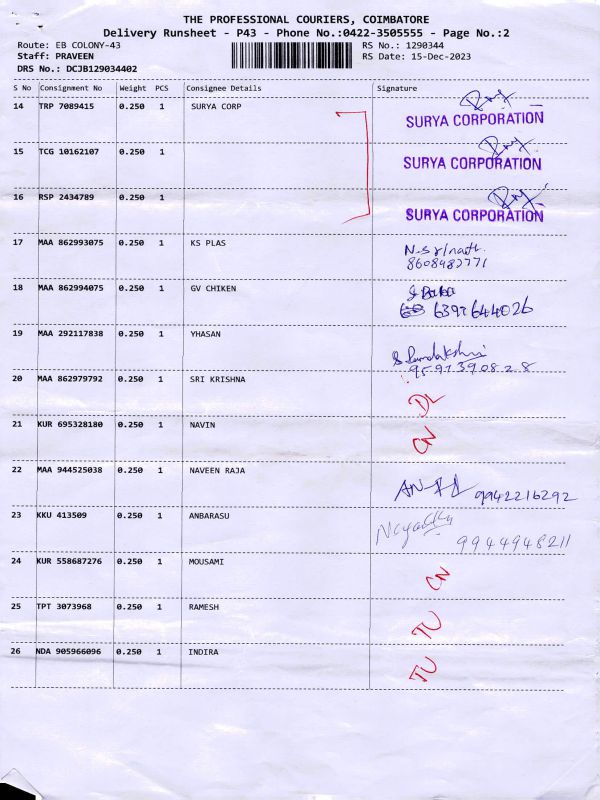 THE PROFESSIONAL COURIERS, COIMBATORE
Delivery Runsheet - P43 - Phone No.:0422-3505555 - Page No.:2
Route: EB COLONY-43 RS No.: 1290344
Staff: PRAVEEN RS Date: 15-Dec-2023
DRS No.: DCJB129034402
S No Consignment No Weight PCS Consignee Details Signature
14 TRP 7089415 0.250 1 SURYA CORP SURYA CORPORATION
15 TCG 10162107 0.250 1 SURYA CORPORATION
16 RSP 2434789 0.250 1 SURYA CORPORATION
17 MAA 862993075 0.250 1 KS PLAS
8608482771
18 MAA 862994075 0.250 1 GV CHIKEN
6397644026
19 MAA 292117838 0.250 1 YHASAN
9597390828
20 MAA 862979792 0.250 1 SRI KRISHNA DL
21 KUR 695328180 0.250 1 NAVIN CN
22 MAA 944525038 0.250 1 NAVEEN RAJA 9942216292
23 KKU 413509 0.250 1 ANBARASU
9944948211
24 KUR 558687276 0.250 1 MOUSAMI CN
25 TPT 3073968 0.250 1 RAMESH TU
26 NDA 905966096 0.250 1 INDIRA TU